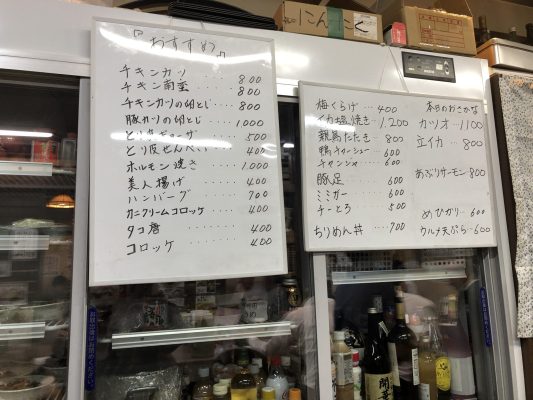 にんにく
『おすすめ』
チキンカツ ‥‥‥ 800
チキン南蛮 ‥‥‥ 800
チキンカツの卵とじ ‥‥ 800
豚カツの卵とじ ‥‥ 1000
とり皮ギョーザ ‥‥‥ 500
とり皮せんべい ‥‥‥ 400
ホルモン焼き ‥‥‥ 1.000
美人揚げ ‥‥‥ 400
ハンバーグ ‥‥‥ 700
カニクリームコロッケ ‥‥ 400
タコ唐 ‥‥‥ 400
コロッケ ‥‥‥ 400
梅くらげ ‥‥ 400
イカ塩焼き ‥ 1.200
親鳥たたき ‥ 800
鴨チャーシュー ‥ 600
チャンジャ ‥‥ 600
豚足 ‥‥ 600
ミミガー ‥‥ 600
チーとろ ‥‥ 500
ちりめん丼 ‥‥ 700
本日のおさかな
カツオ ‥ 1100
立イカ ‥ 800
あぶりサーモン ‥ 800
めひかり ‥ 600
ウルメ天ぷら ‥ 600
お取出後はお閉めください。